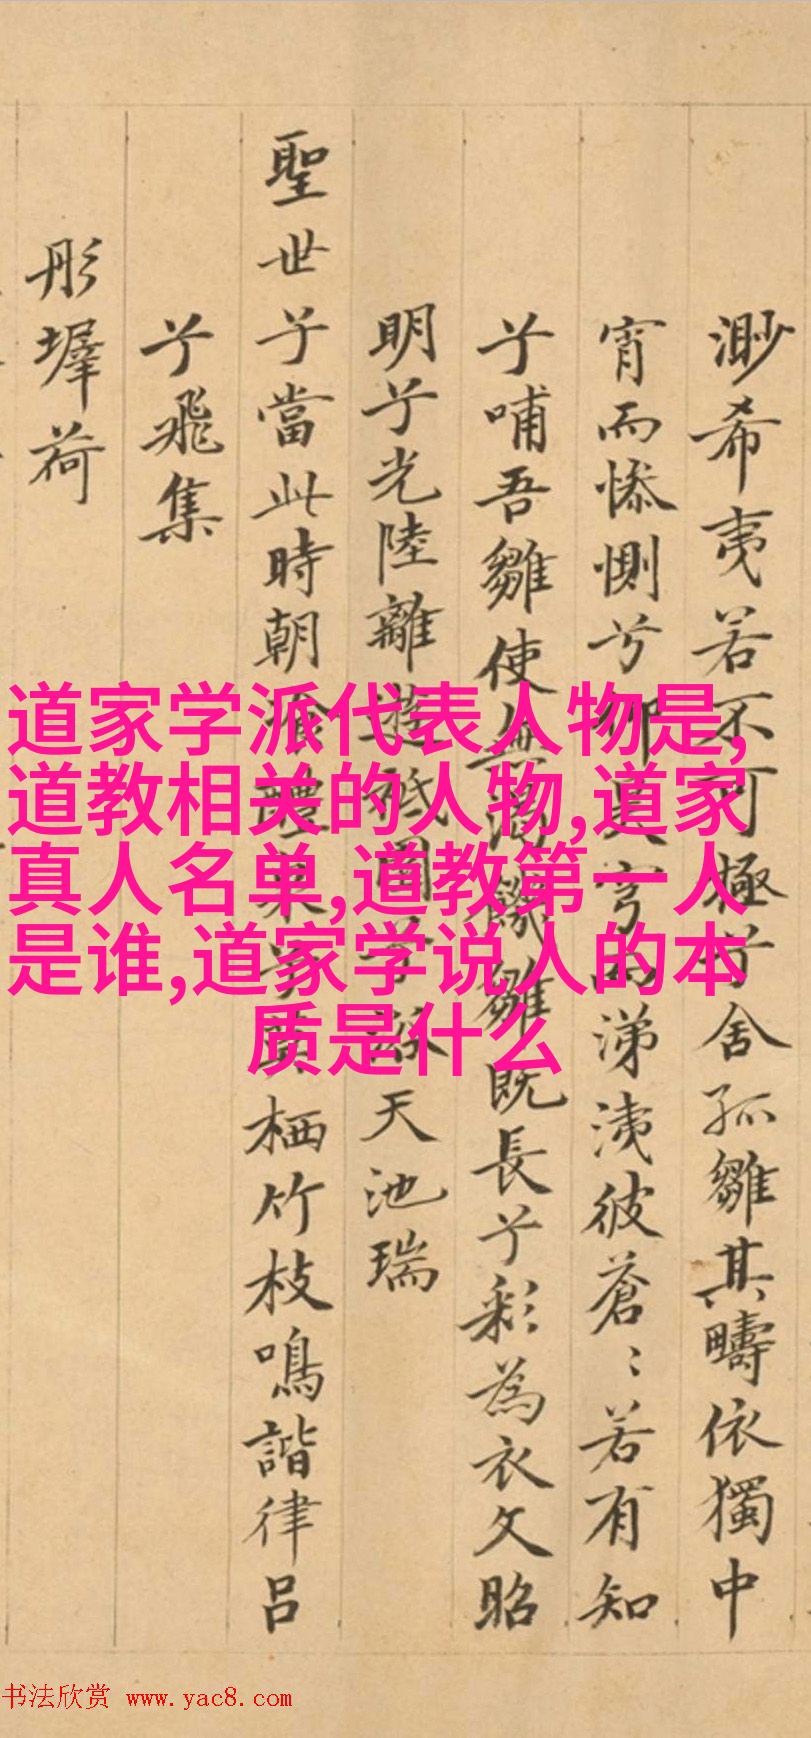 渺希夷若不可極兮舍孤雛其疇依獨中
宵而慘惻兮穹而涕洟彼蒼〻若有知
兮哺吾雛使無渴饑雛既長兮彩為衣文昭
明兮光陸離遊祇園兮浴天池瑞
聖世兮當此時朝醴栖竹枝鳴諧律呂
兮飛集
彤墀荷
道家学派代表人物是,
道教相关的人物,道家
真人名单,道教第一人
是谁,道家学说人的本
质是什么
书法欣赏 www.yac8.com